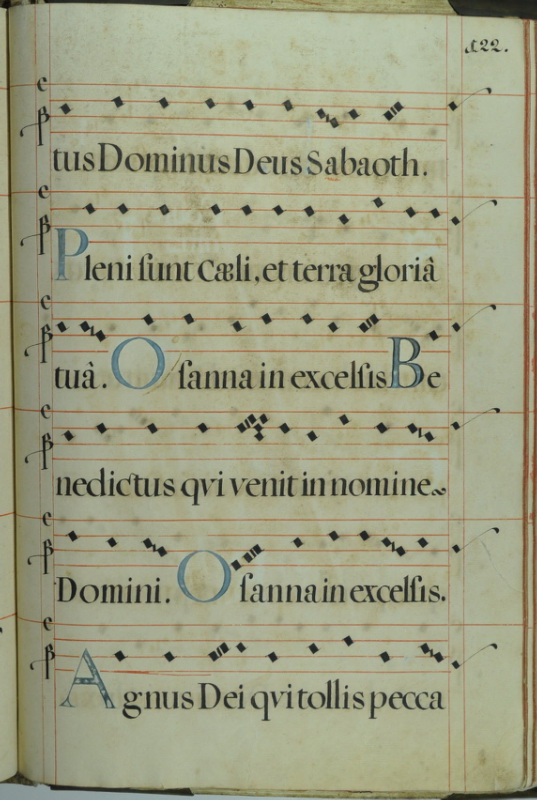 122.
tus Dominus Deus Sabaoth.
Pleni ſunt Cæli, et terra gloriâ
tuâ. Oſanna in excelſis Be
nedictus qvi venit in nomine
Domini. Oſanna in excelſis.
Agnus Dei qvi tollis pecca